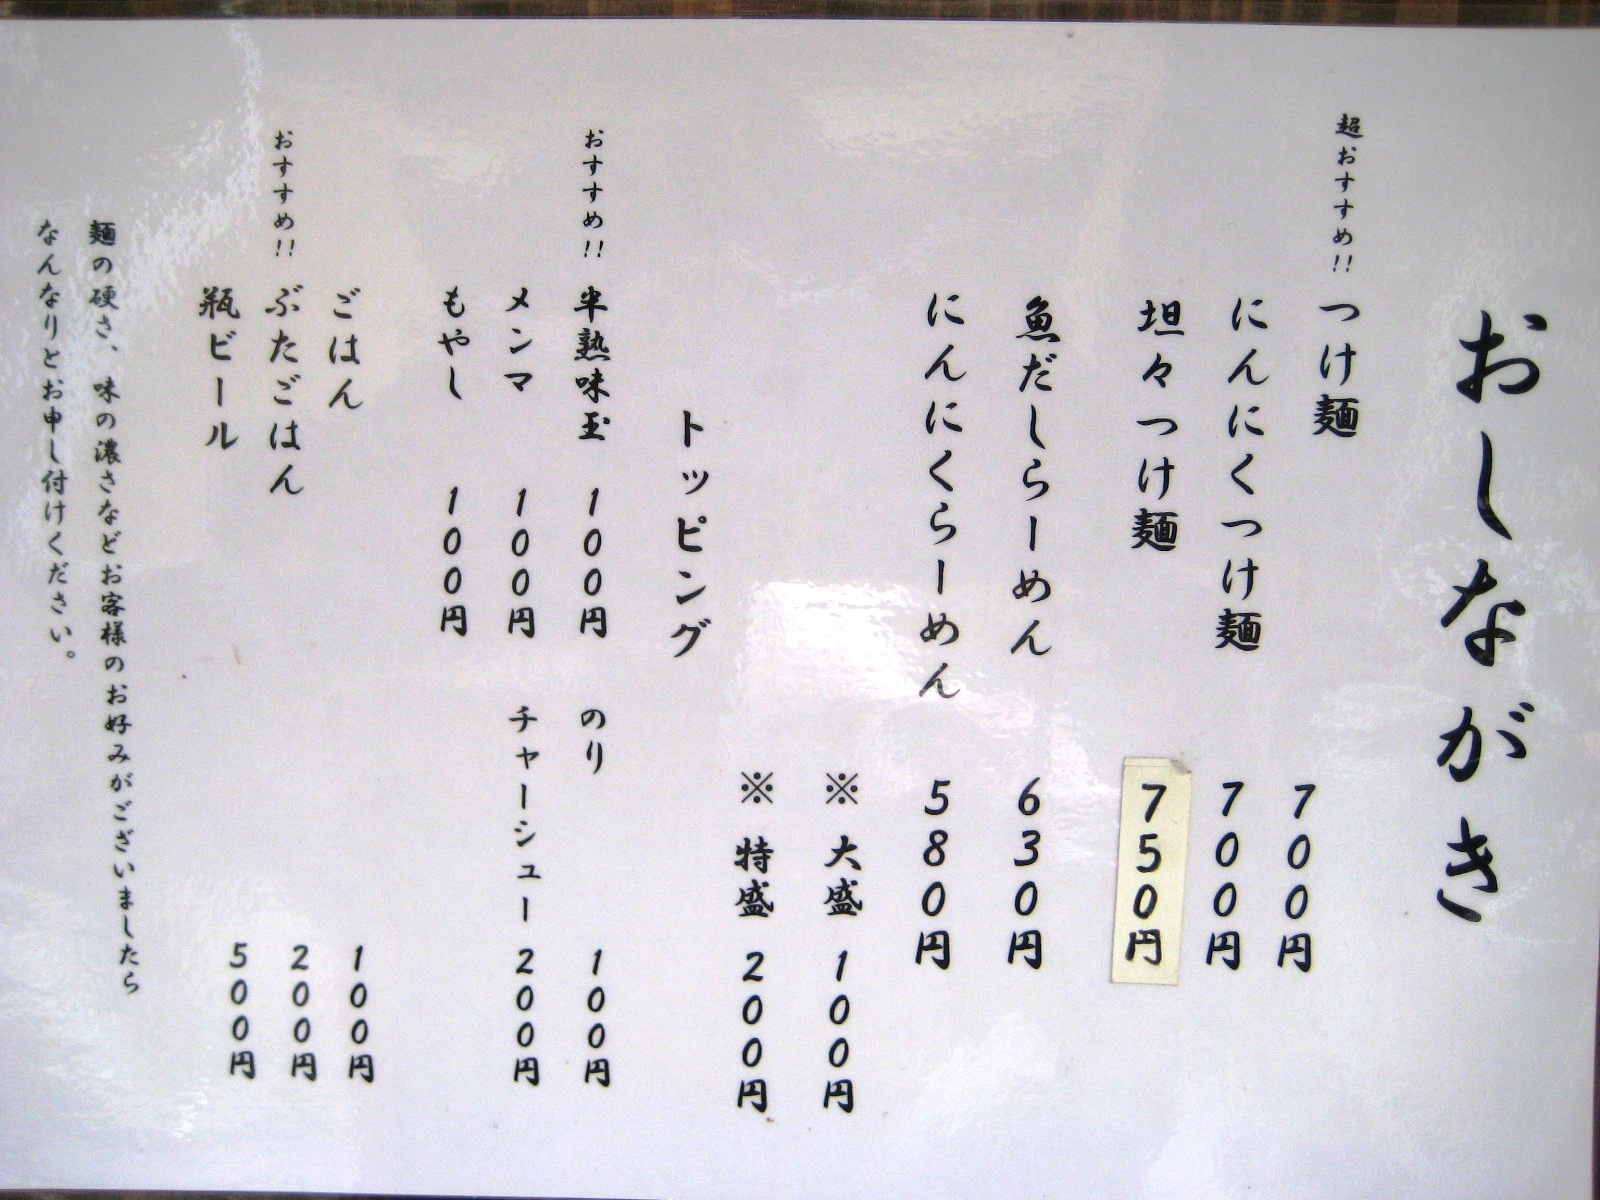 おしながき
超おすすめ!! つけ麺 700円
にんにくつけ麺 700円
坦々つけ麺 750円
魚だしらーめん 630円
にんにくらーめん 580円
※ 大盛 100円
※ 特盛 200円
トッピング
おすすめ!! 半熟味玉 100円 のり 100円
メンマ 100円 チャーシュー 200円
もやし 100円
ごはん 100円
おすすめ!! ぶたごはん 200円
瓶ビール 500円
麺の硬さ、味の濃さなどお客様のお好みがございましたら
なんなりとお申し付けください。